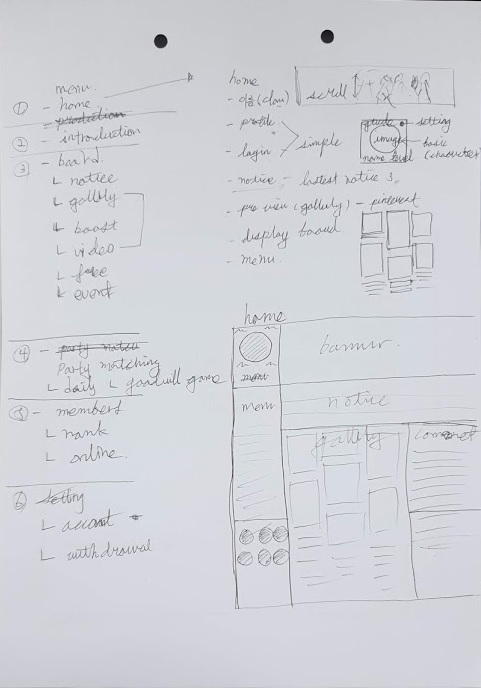 menu.
① - home
production
② - introduction
③ - board
└ notice
└ gallely
└ boast
└ video
└ free
└ event
④ - party match
Party matching
└ daily └ goodwill game
⑤ - members
└ rank
└ online.
⑥ setting
└ accont
└ withdrawal
home
- 이름 (clan)
scroll
- profile
- login
simple
- notice - lastest notice 3.
- pre view (gallely) - pinterest
- display board
- menu.
setting
image
basic
name level (charaoter)
home
banner.
menu
menu
notice
gallely